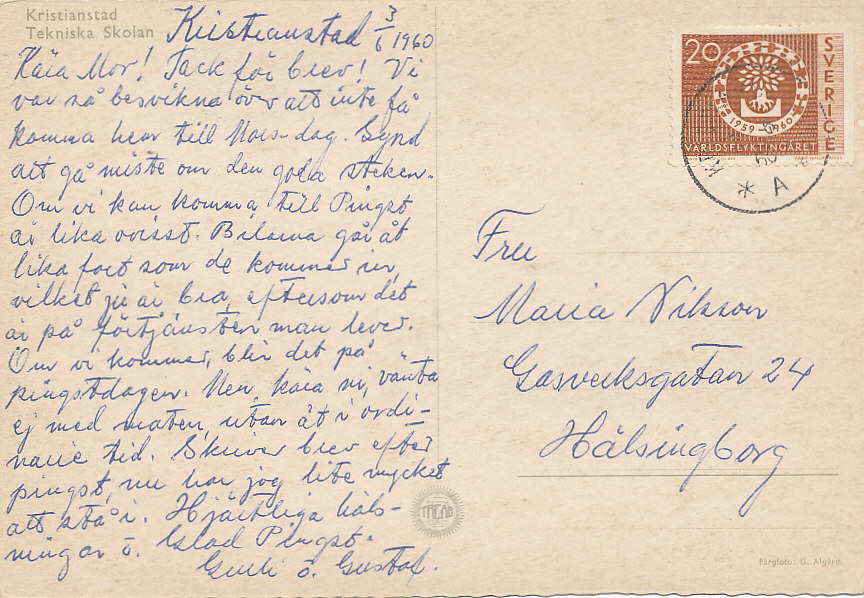 Kristianstad
Tekniska Skolan
Kristianstad 3/6 1960
Kära Mor! Tack för brev! Vi
var så besvikna över att inte få
komma hem till Mors-dag. Synd
att gå miste om den goda steken.
Om vi kan komma till Pingst
är lika ovisst. Bilarna går åt
lika fort som de kommer in,
vilket ju är bra, eftersom det
är på förtjänsten man lever.
Om vi kommer, blir det på
pingstdagen. Men, kära ni, vänta
ej med maten, utan ät i ordi-
narie tid. Skriver brev efter
pingst, nu har jag lite mycket
att stå i. Hjärtliga häls-
ningar o. Glad Pingst.
Gulli o. Gustaf.
20
SVERIGE
1959-1960
VÄRLDSFLYKTINGÅRET
* A
Fru
Maria Nilsson
Gasverksgatan 24
Hälsingborg
Färgfoto: G. Algård.